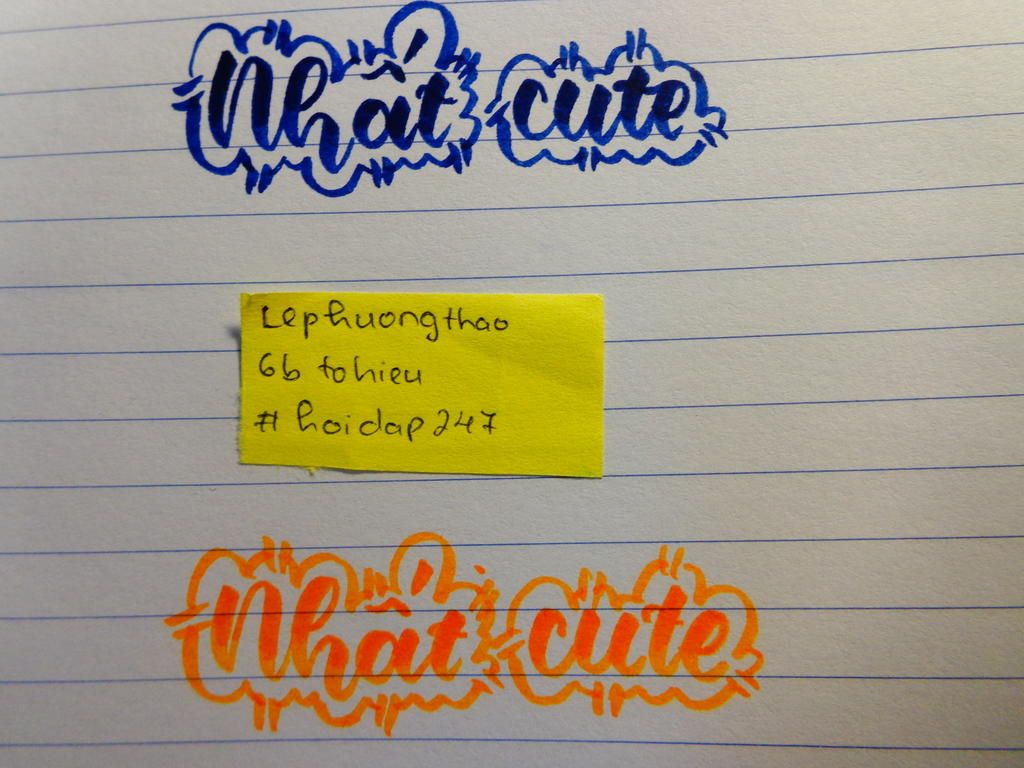 Nhất cute
Lephuongthao
6b tohieu
# hoidap247
Nhất cute